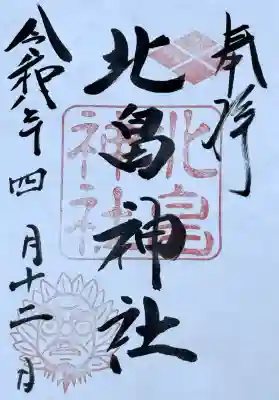 奉拝
北畠神社
北畠
神社
令和八年四月十二日